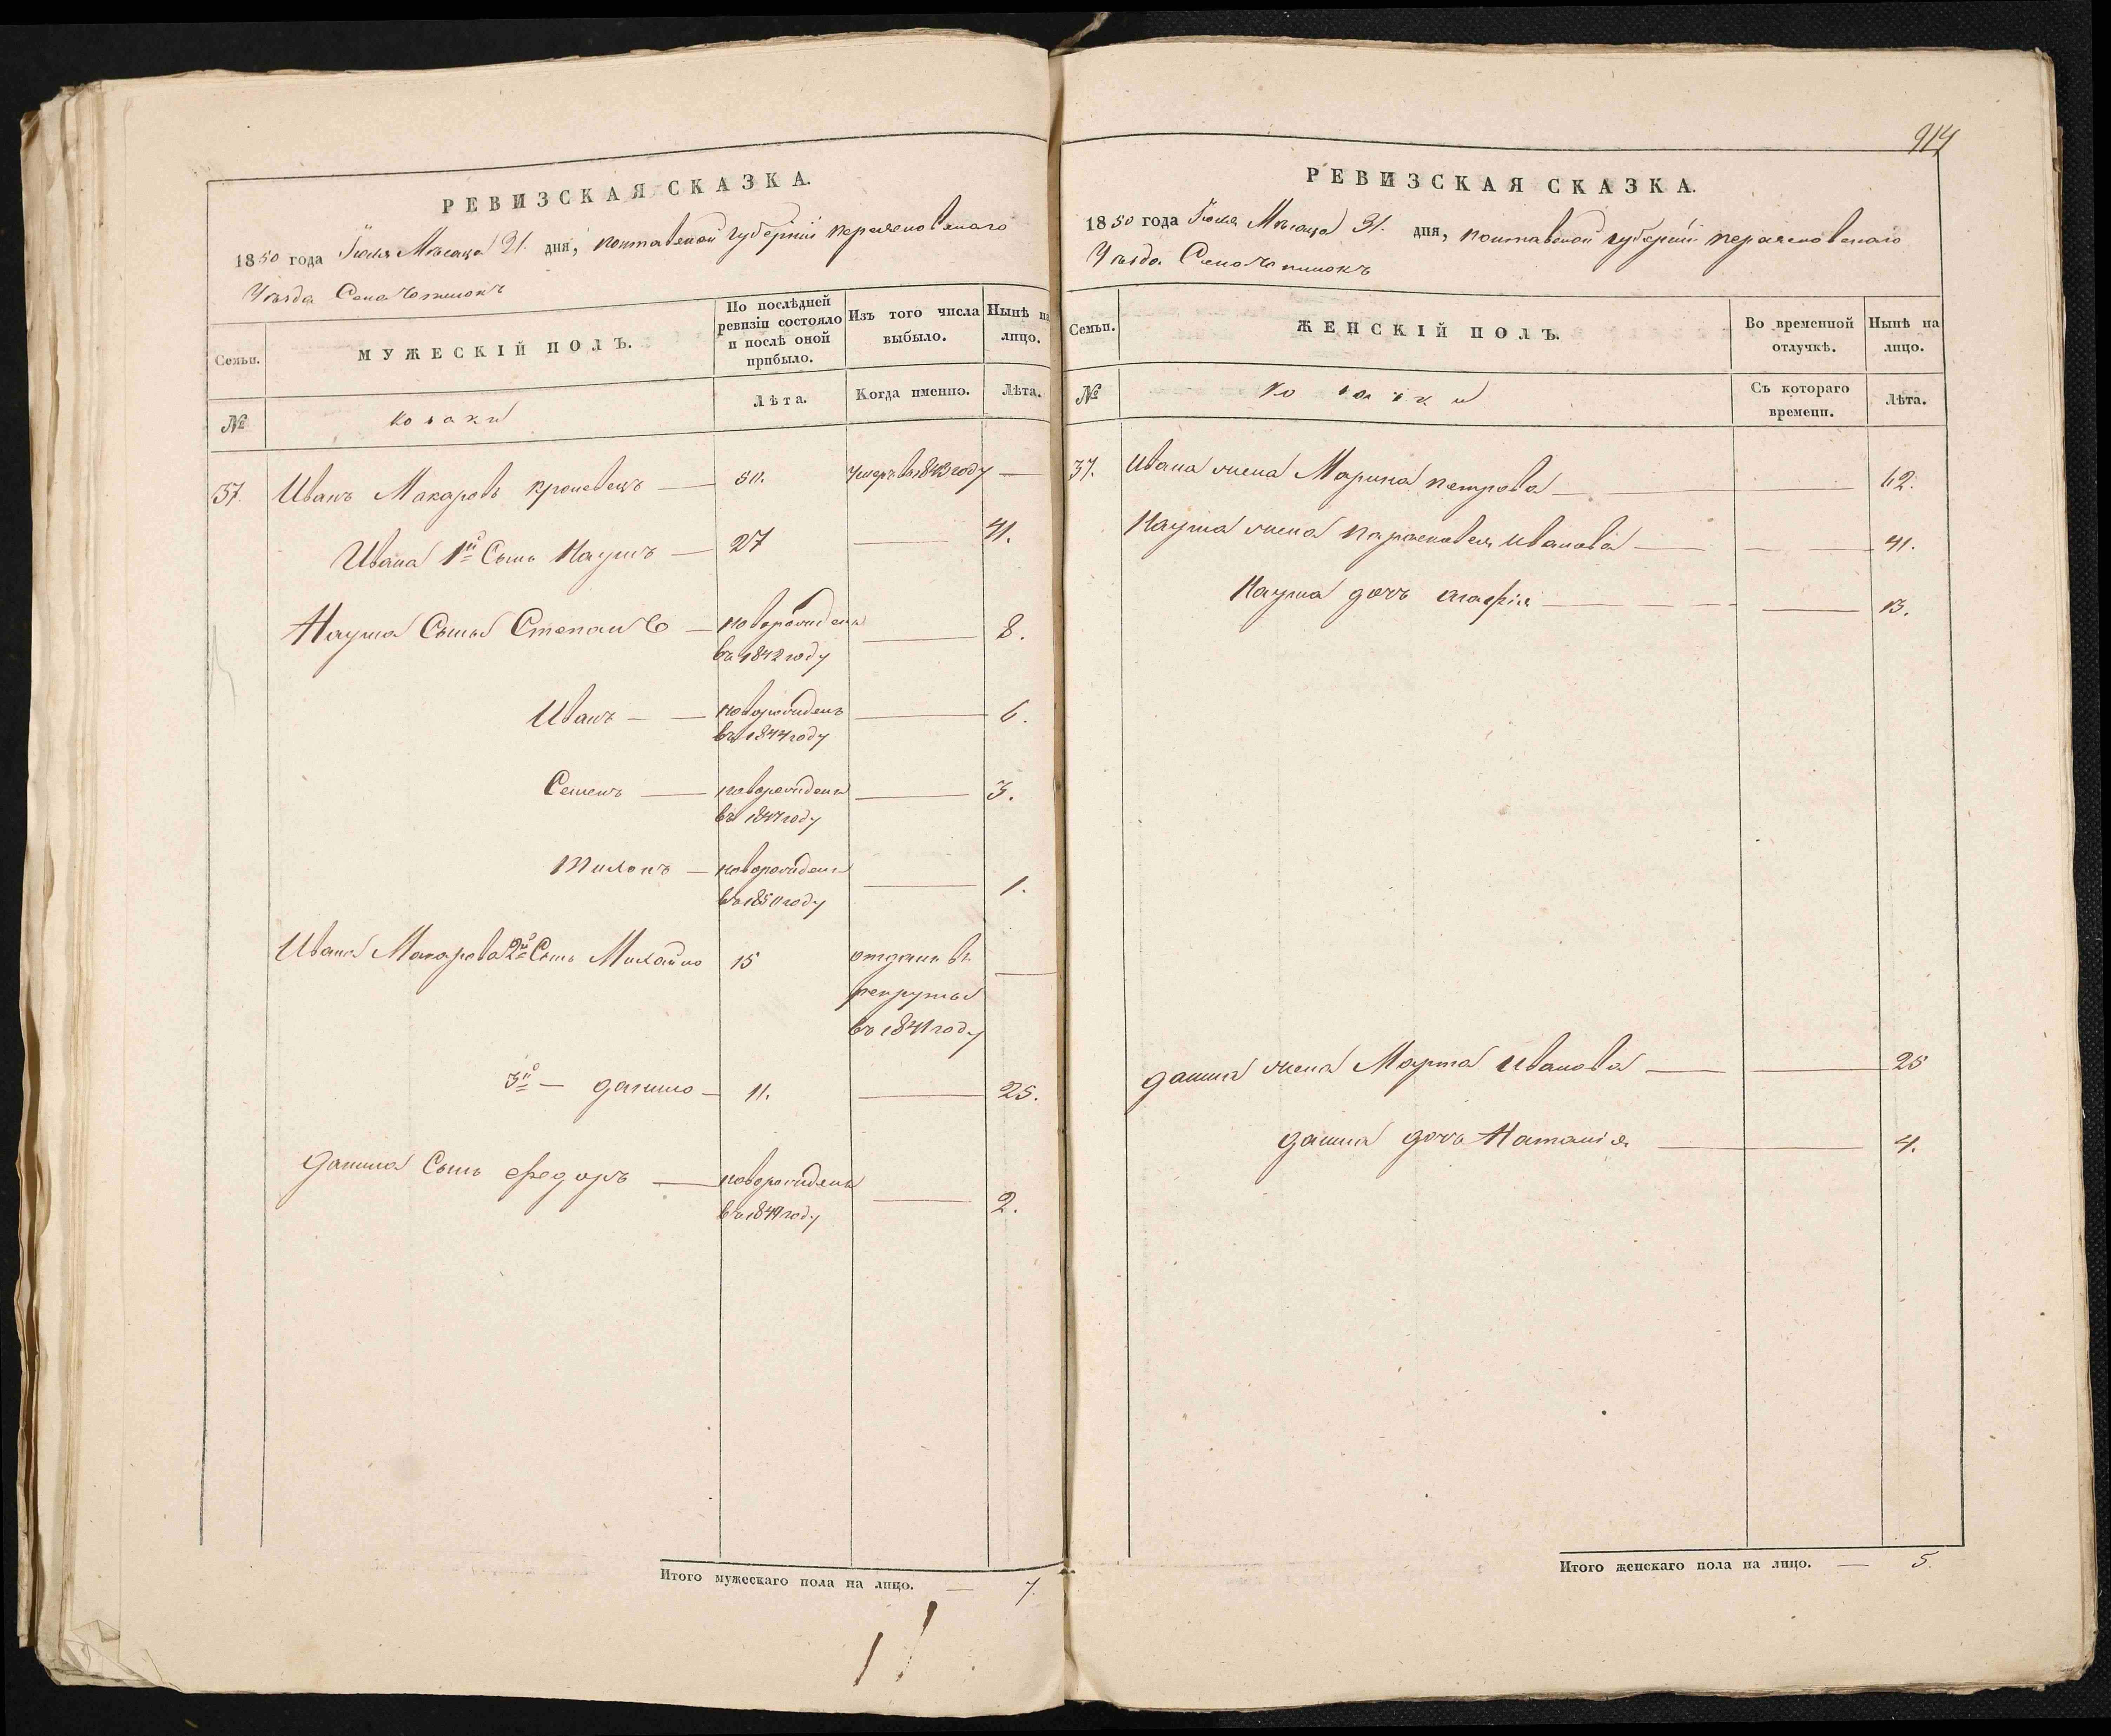 РЕВИЗСКАЯ СКАЗКА.
1850 года Іюля Мѣсяца 31. дня, полтавской губерніи переяславскаго
Уѣзда Села
Семьи.
МУЖЕСКІЙ ПОЛЪ.
По послѣдней ревизіи состояло и послѣ оной прибыло.
Изъ того числа выбыло.
Нынѣ на лицо.
№
козаки
Лѣта.
Когда именно.
Лѣта.
37. Иванъ Макаровъ — 50. умеръ в 1843 году —
Ивана 1й Сынъ Наумъ — 27 — 41.
Наума Сыны Степанъ — новорожденъ — 8.
въ 1842 году
Иванъ — — новорожденъ — 6.
въ 1844 году
Семенъ — новорожденъ — 3.
въ 1847 году
Тихонъ — новорожденъ — 1.
въ 1850 году
Ивана Макарова 2й Сынъ Михайло 15 отданъ въ —
рекруты
въ 1841 году
3й — данило — 11. — 25.
Данила Сынъ федоръ — новорожденъ — 2.
въ 1849 году
Итого мужескаго пола на лицо. — 7.
914
РЕВИЗСКАЯ СКАЗКА.
1850 года Іюля Мѣсяца 31. дня, полтавской губерніи переяславскаго
Уѣзда Села
Семьи.
ЖЕНСКІЙ ПОЛЪ.
Во временной отлучкѣ.
Нынѣ на лицо.
№
козачки
Съ котораго времени.
Лѣта.
37. Ивана жена Марина петрова — — 62.
Наума жена парасковея Иванова — — — 41.
Наума дочь агафія — — — — 13.
данила жена Марта Иванова — — 25
данила дочь Наталія — 4.
Итого женскаго пола на лицо. — 5.